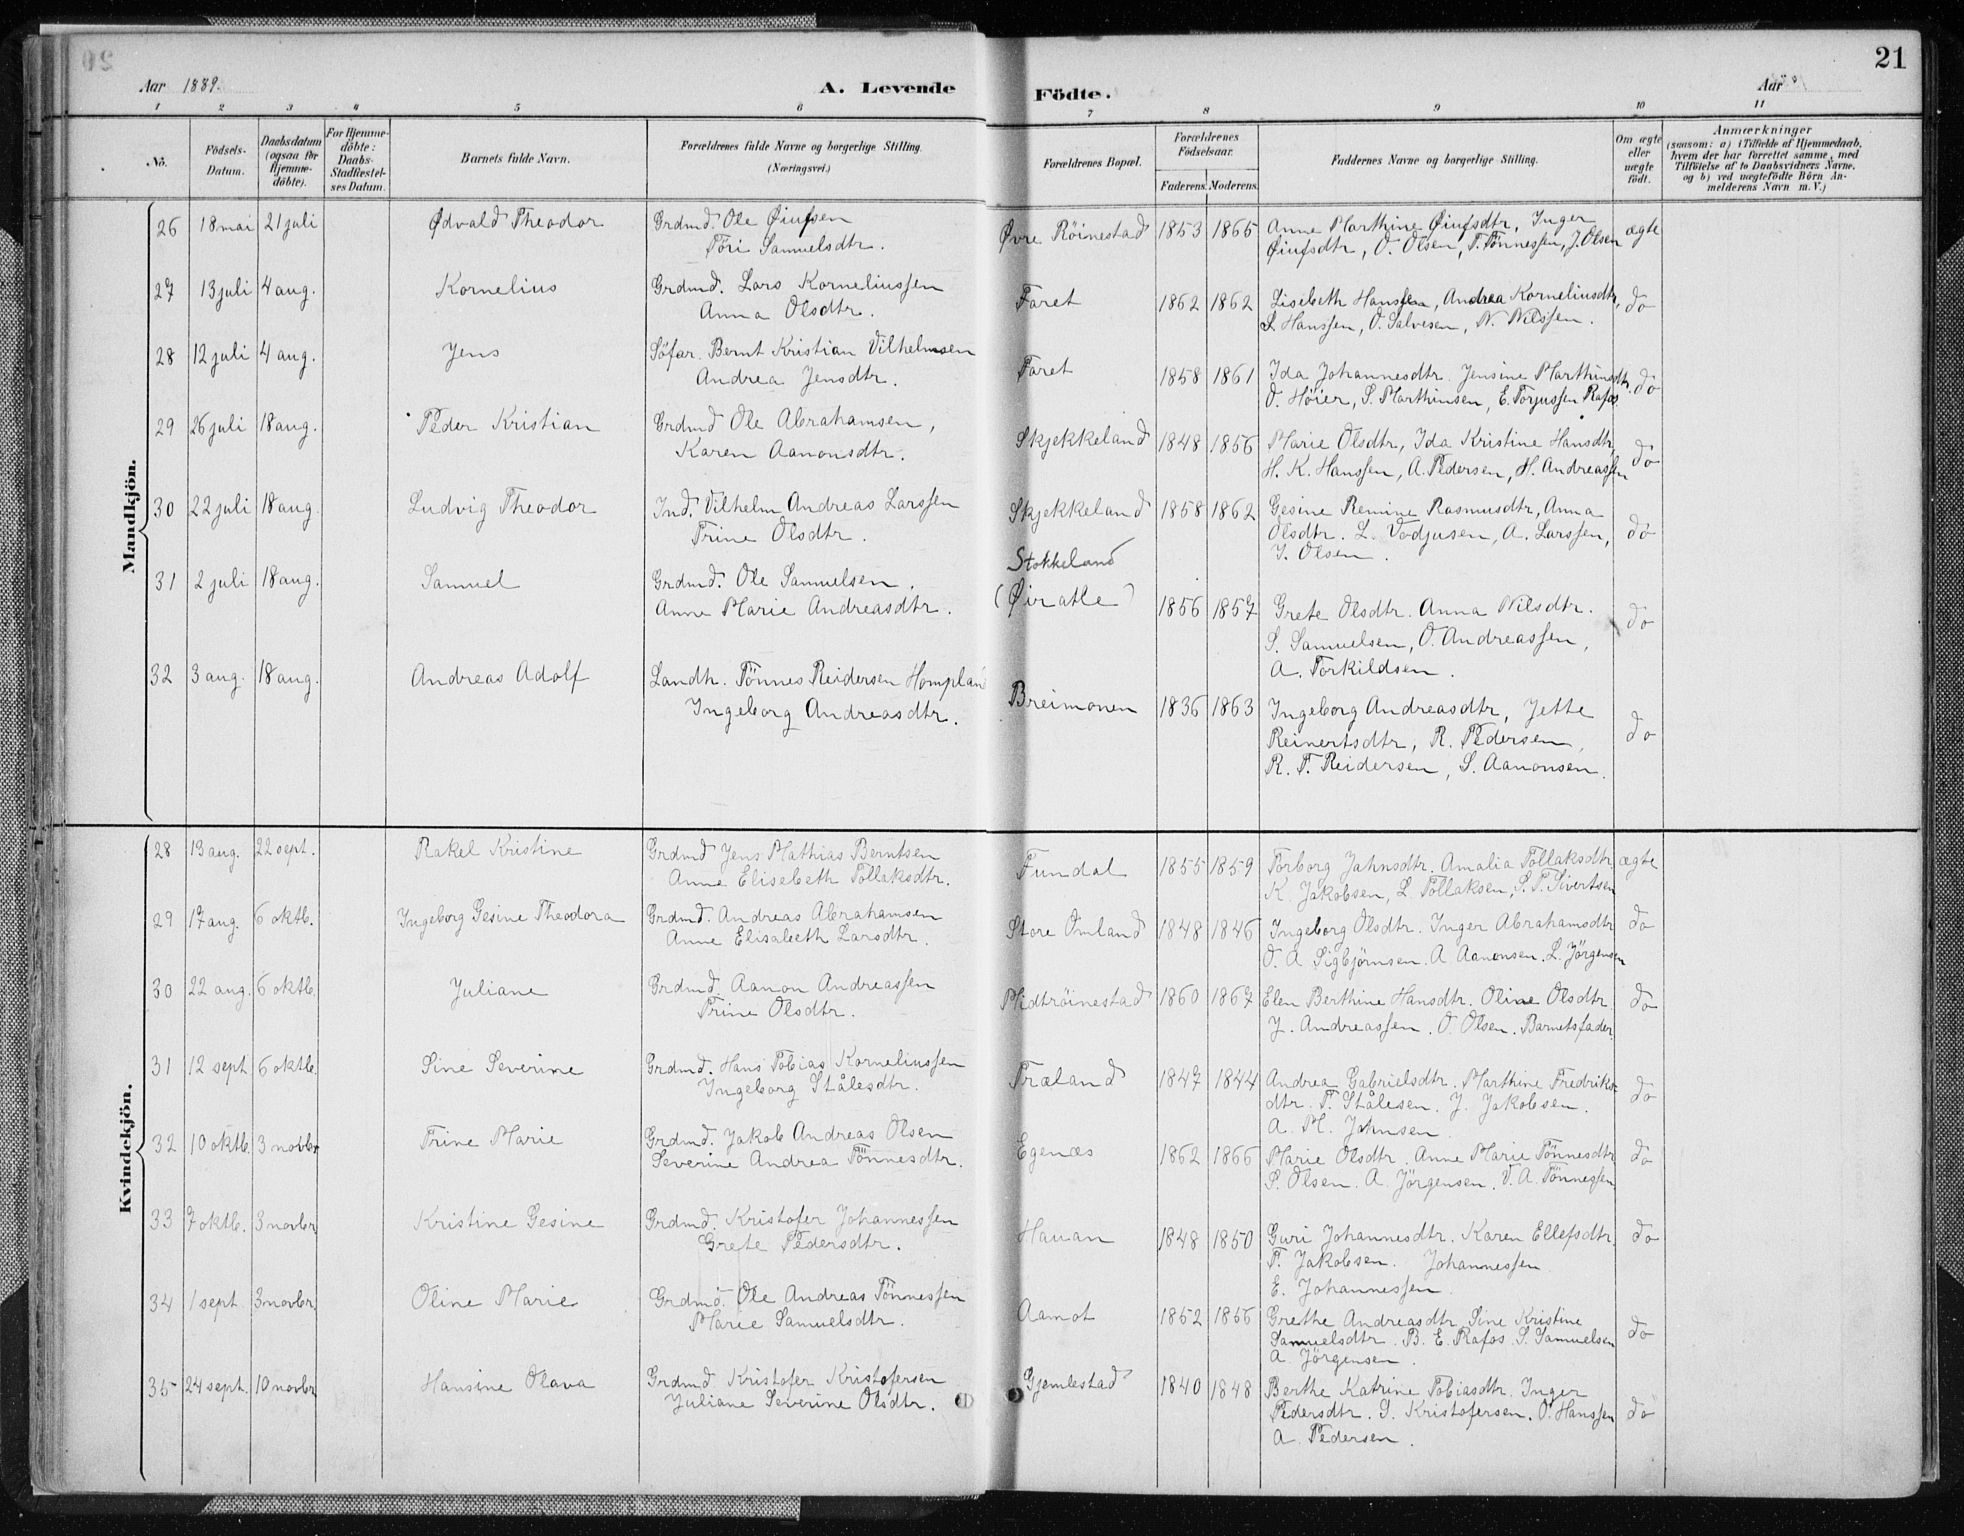 Aar 1889. A. Levende Födte. Aar 21
1 2 3 4 5 6 7 8 9 10 11
Nö.
Födsels-Datum.
Daabsdatum (ogsaa før Hjemme-döbte).
For Hjemme-döbte: Daabs-Stadfæstel-ses Datum.
Barnets fulde Navn.
Forældrenes fulde Navne og borgerlige Stilling. (Næringsvei.)
Forældrenes Bopæl.
Forældrenes Födselsaar.
Faderens. Moderens.
Faddernes Navne og borgerlige Stilling.
Om ægte eller uægte födt.
Anmærkninger
(saasom: a) i Tilfælde af Hjemmedaab, hvem der har forrettet samme, med Tilföielse af to Daabsvidners Navne, og b) ved uægtefödte Börn Anmelderens Navn m.V.)
Mandkjön.
26 18 mai 21 juli Ødvald Theodor Grdmd. Ole Øiufsen Øvre Röinestad 1853 1865 Anne Marthine Øiufsdtr, Inger ægte
Töri Samuelsdtr. Øiufsdtr, O. Olsen, T. Tönnessen, J. Olsen
27 13 juli 4 aug. Kornelius Grdmd. Lars Korneliussen Faret 1862 1862 Lisebeth Hanssen, Andrea Korneliusdtr, do
Anna Olsdtr. L Hanssen, O. Salvesen, N. Nilssen.
28 12 juli 4 aug. Jens Söfar. Bernt Kristian Vilhelmsen Faret 1858 1861 Ida Johannesdtr. Jensine Marthinsdtr. do
Andrea Jensdtr. O. Höier, S. Marthinsen, E. Torjussen Rafos
29 26 juli 18 aug. Peder Kristian Grdmd Ole Abrahamsen, Skjekkeland 1848 1856 Marie Olsdtr, Ida Kristine Hansdtr do
Karen Aanonsdtr. H. K. Hanssen, A. Pedersen, H. Andreassen
30 22 juli 18 aug. Ludvig Theodor Ind. Vilhelm Andreas Larssen Skjekkeland 1858 1862 Gesine Remine Rasmusdtr, Anna do
Trine Olsdtr. Olsdtr. L. Vodjusen, A. Larssen,
J. Olsen.
31 2 juli 18 aug. Samuel Grdmd. Ole Samuelsen. Stokkeland
Anne Marie Andreasdtr. (Øiratle) 1856 1857 Grete Olsdtr. Anna Nilsdtr. do
S. Samuelsen, O. Andreassen,
A. Torkildsen.
32 3 aug. 18 aug. Andreas Adolf Landh. Tönnes Reidersen Hompland Breimonen 1836 1863 Ingeborg Andreasdtr, Jette do
Ingeborg Andreasdtr. Reinertsdtr, R. Pedersen,
R. T. Reidersen, S. Aanonsen.
Kvindekjön.
28 13 aug. 22 sept. Rakel Kristine Grdmd Jens Mathias Berntsen Fundal 1855 1859 Torborg Jahnsdtr. Amalia Tollaksdtr ægte
Anne Elisebeth Tollaksdtr. K. Jakobsen, L Tollaksen, S. T. Sivertsen
29 17 aug. 6 oktb. Ingeborg Gesine Theodora Grdmd. Andreas Abrahamsen Store Omland 1848 1846 Ingeborg Olsdtr. Inger Abrahamsdtr do
Anne Elisabeth Larsdtr. O. A Sigbjörnsen. A Aanonsen. L. Jörgensen
30 22 aug. 6 oktb. Juliane Grdmd. Aanon Andreassen Midtröinestad 1860 1867 Elen Berthine Hansdtr. Oline Olsdtr do
Trine Olsdtr. J. Andreassen. O Olsen. Barnetsfader.
31 12 sept 6 oktb. Sine Severine Grdmd. Hans Tobias Korneliussen Træland 1847 1844 Andrea Gabrielsdtr. Marthine Fredriks- do
Ingeborg Stålesdtr. dtr. T. Stålesen. J. Jakobsen.
A. M. Jahnsen
32 10 oktb. 3 novbr Trine Marie Grdmd. Jakob Andreas Olsen Egenæs 1862 1866 Marie Olsdtr. Anne Marie Tönnesdtr do
Severine Andrea Tönnesdtr. S. Olsen. A. Jörgensen. V. A. Tönnessen
33 7 oktb. 3 novbr Kristine Gesine Grdmd. Kristofer Johannessen Hauan 1848 1850 Guri Johannesdtr. Karen Ellefsdtr. do
Grete Pedersdtr. T. Jakobsen. Johannessen
E. Johannessen
34 1 sept. 3 novbr Oline Marie Grdmd. Ole Andreas Tönnessen Aamot 1852 1856 Grethe Andreasdtr. Sine Kristine do
Marie Samuelsdtr. Samuelsdtr. B. E. Rafos. S. Samuelsen
A. Jörgensen.
35 24 sept. 10 novbr Hansine Olava Grdmd. Kristofer Kristofersen Gjemlestad 1840 1848 Berthe Katrine Tobiasdtr. Inger do
Juliane Severine Olsdtr. Pedersdtr. S. Kristofersen. O. Hanssen
A. Pedersen.